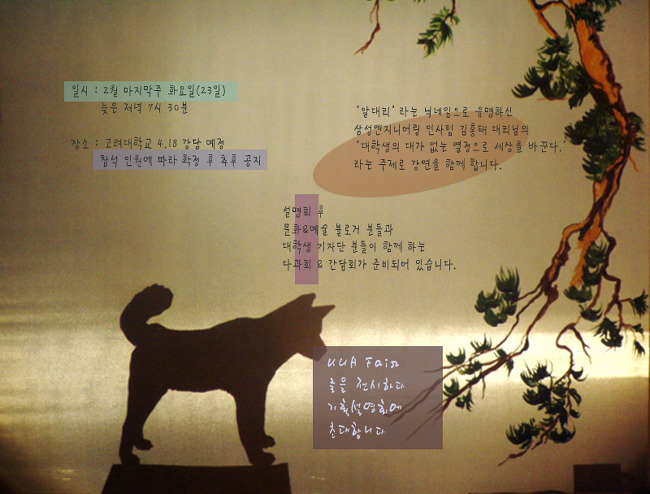 일시 : 2월 마지막주 화요일(23일)
늦은 저녁 7시 30분
장소 : 고려대학교 4.18 강당 예정
참석 인원에 따라 확정 후 추후 공지
'알대리' 라는 닉네임으로 유명하신
삼성엔지니어링 인사팀 김홍태 대리님의
'대학생의 대가 없는 열정으로 세상을 바꾼다.'
라는 주제로 강연을 함께 합니다.
설명회 후
문화&예술 블로거 분들과
대학생 기자단 분들이 함께 하는
다과회 & 간담회가 준비되어 있습니다.
UUH Fair
출을 전시하다
기획설명회에
초대합니다